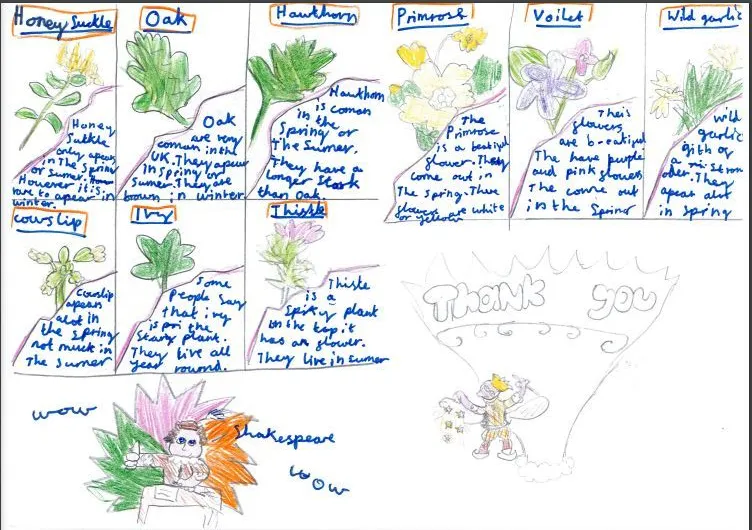 Honey Suckle
Honey
Suttle
only apears
in The Spring
or Sumer.
However it is
rare to apear in
winter.
Oak
Oak
are very
coman in the
UK. They apear
in spring or
sumer. They are
brown in winter
Hawthorn
Hawthorn
is coman
in the
Spring or
The Sumer.
They have a
longer stork
than Oak.
Primrose
The
Primrose
is a beatiful
flower. They
come out in
The Spring. There
flowers are white
or yellow
Voilet
Theis
flowers
are b-eatiful
The have purple
and pink flowers
The come out
in the Spring
Wild garlic
wild
garlic
gith of
a strom
oder. They
apear alot
in spring
cowslip
Cowslip
apears
alot in
the Spring
not much in
The Sumer
Ivy
Some
People Say
that ivy
is the
plant.
They live all
year round.
Thistle
Thistle
is a
Spiky plant
on the top it
has a flower.
They live in sumer
Thank you
wow
Shakespeare
wow